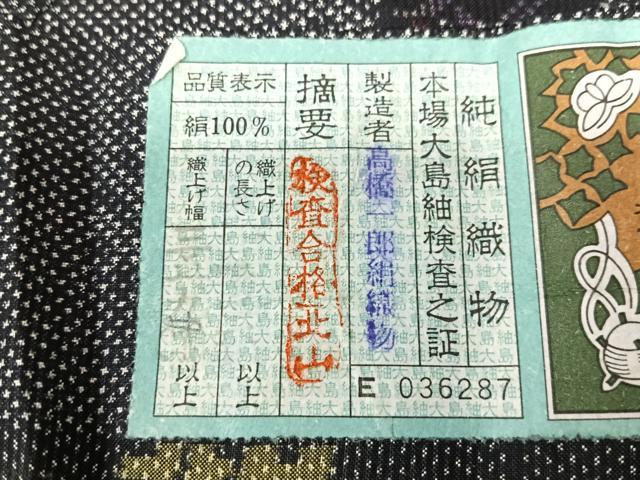 純絹織物
本場大島紬検査之証
製造者
高橋一郎絹織物
E 036287
摘要
検査合格北山
品質表示
絹100%
織上げの長さ
以上
織上げ幅
以上